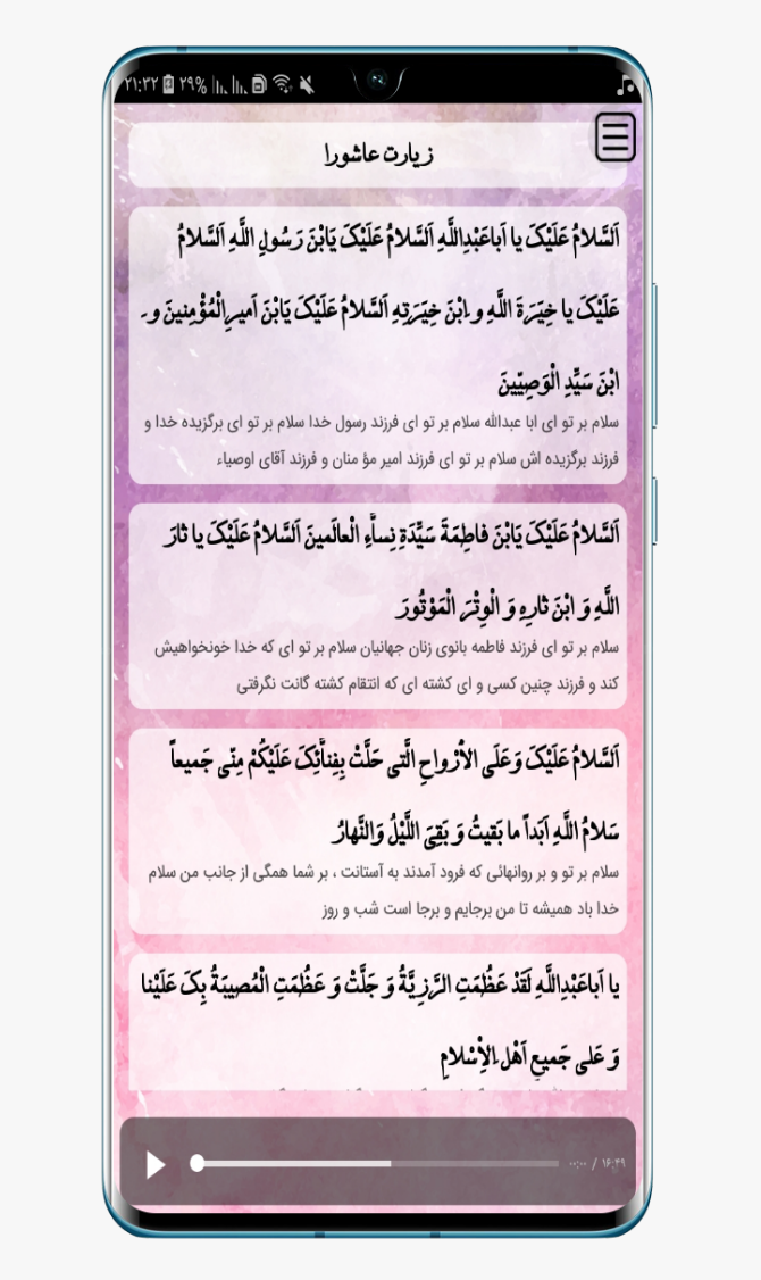 ۲۱:۳۲ ۲۹%
زیارت عاشورا
اَلسَّلامُ عَلَیْکَ یا اَباعَبْدِاللَّهِ اَلسَّلامُ عَلَیْکَ یَابْنَ رَسُولِ اللَّهِ اَلسَّلامُ
عَلَیْکَ یا خِیَرَةَ اللَّهِ و ابْنَ خِیَرَتِهِ اَلسَّلامُ عَلَیْکَ یَابْنَ اَمیرِالْمُؤْمِنینَ و
ابْنَ سَیِّدِ الْوَصِیّینَ
سلام بر تو ای ابا عبدالله سلام بر تو ای فرزند رسول خدا سلام بر تو ای برگزیده خدا و
فرزند برگزیده اش سلام بر تو ای فرزند امیر مؤ منان و فرزند آقای اوصیاء
اَلسَّلامُ عَلَیْکَ یَابْنَ فاطِمَةَ سَیِّدَةِ نِساَّءِ الْعالَمینَ اَلسَّلامُ عَلَیْکَ یا ثارَ
اللَّهِ وَ ابْنَ ثارِهِ وَ الْوِتْرَ الْمَوْتُورَ
سلام بر تو ای فرزند فاطمه بانوی زنان جهانیان سلام بر تو ای که خدا خونخواهیش
کند و فرزند چنین کسی و ای کشته ای که انتقام کشته گانت نگرفتی
اَلسَّلامُ عَلَیْکَ وَعَلَی الاَْرْواحِ الَّتی حَلَّتْ بِفِناَّئِکَ عَلَیْکُمْ مِنّی جَمیعاً
سَلامُ اللَّهِ اَبَداً ما بَقیتُ وَ بَقِیَ اللَّیْلُ وَالنَّهارُ
سلام بر تو و بر روانهائی که فرود آمدند به آستانت ، بر شما همگی از جانب من سلام
خدا باد همیشه تا من برجایم و برجا است شب و روز
یا اَباعَبْدِاللَّهِ لَقَدْ عَظُمَتِ الرَّزِیَّةُ وَ جَلَّتْ وَ عَظُمَتِ الْمُصیبَةُ بِکَ عَلَیْنا
وَ عَلی جَمیعِ اَهْلِ الاِْسْلامِ
۰۰:۰۰ / ۱۶:۴۹